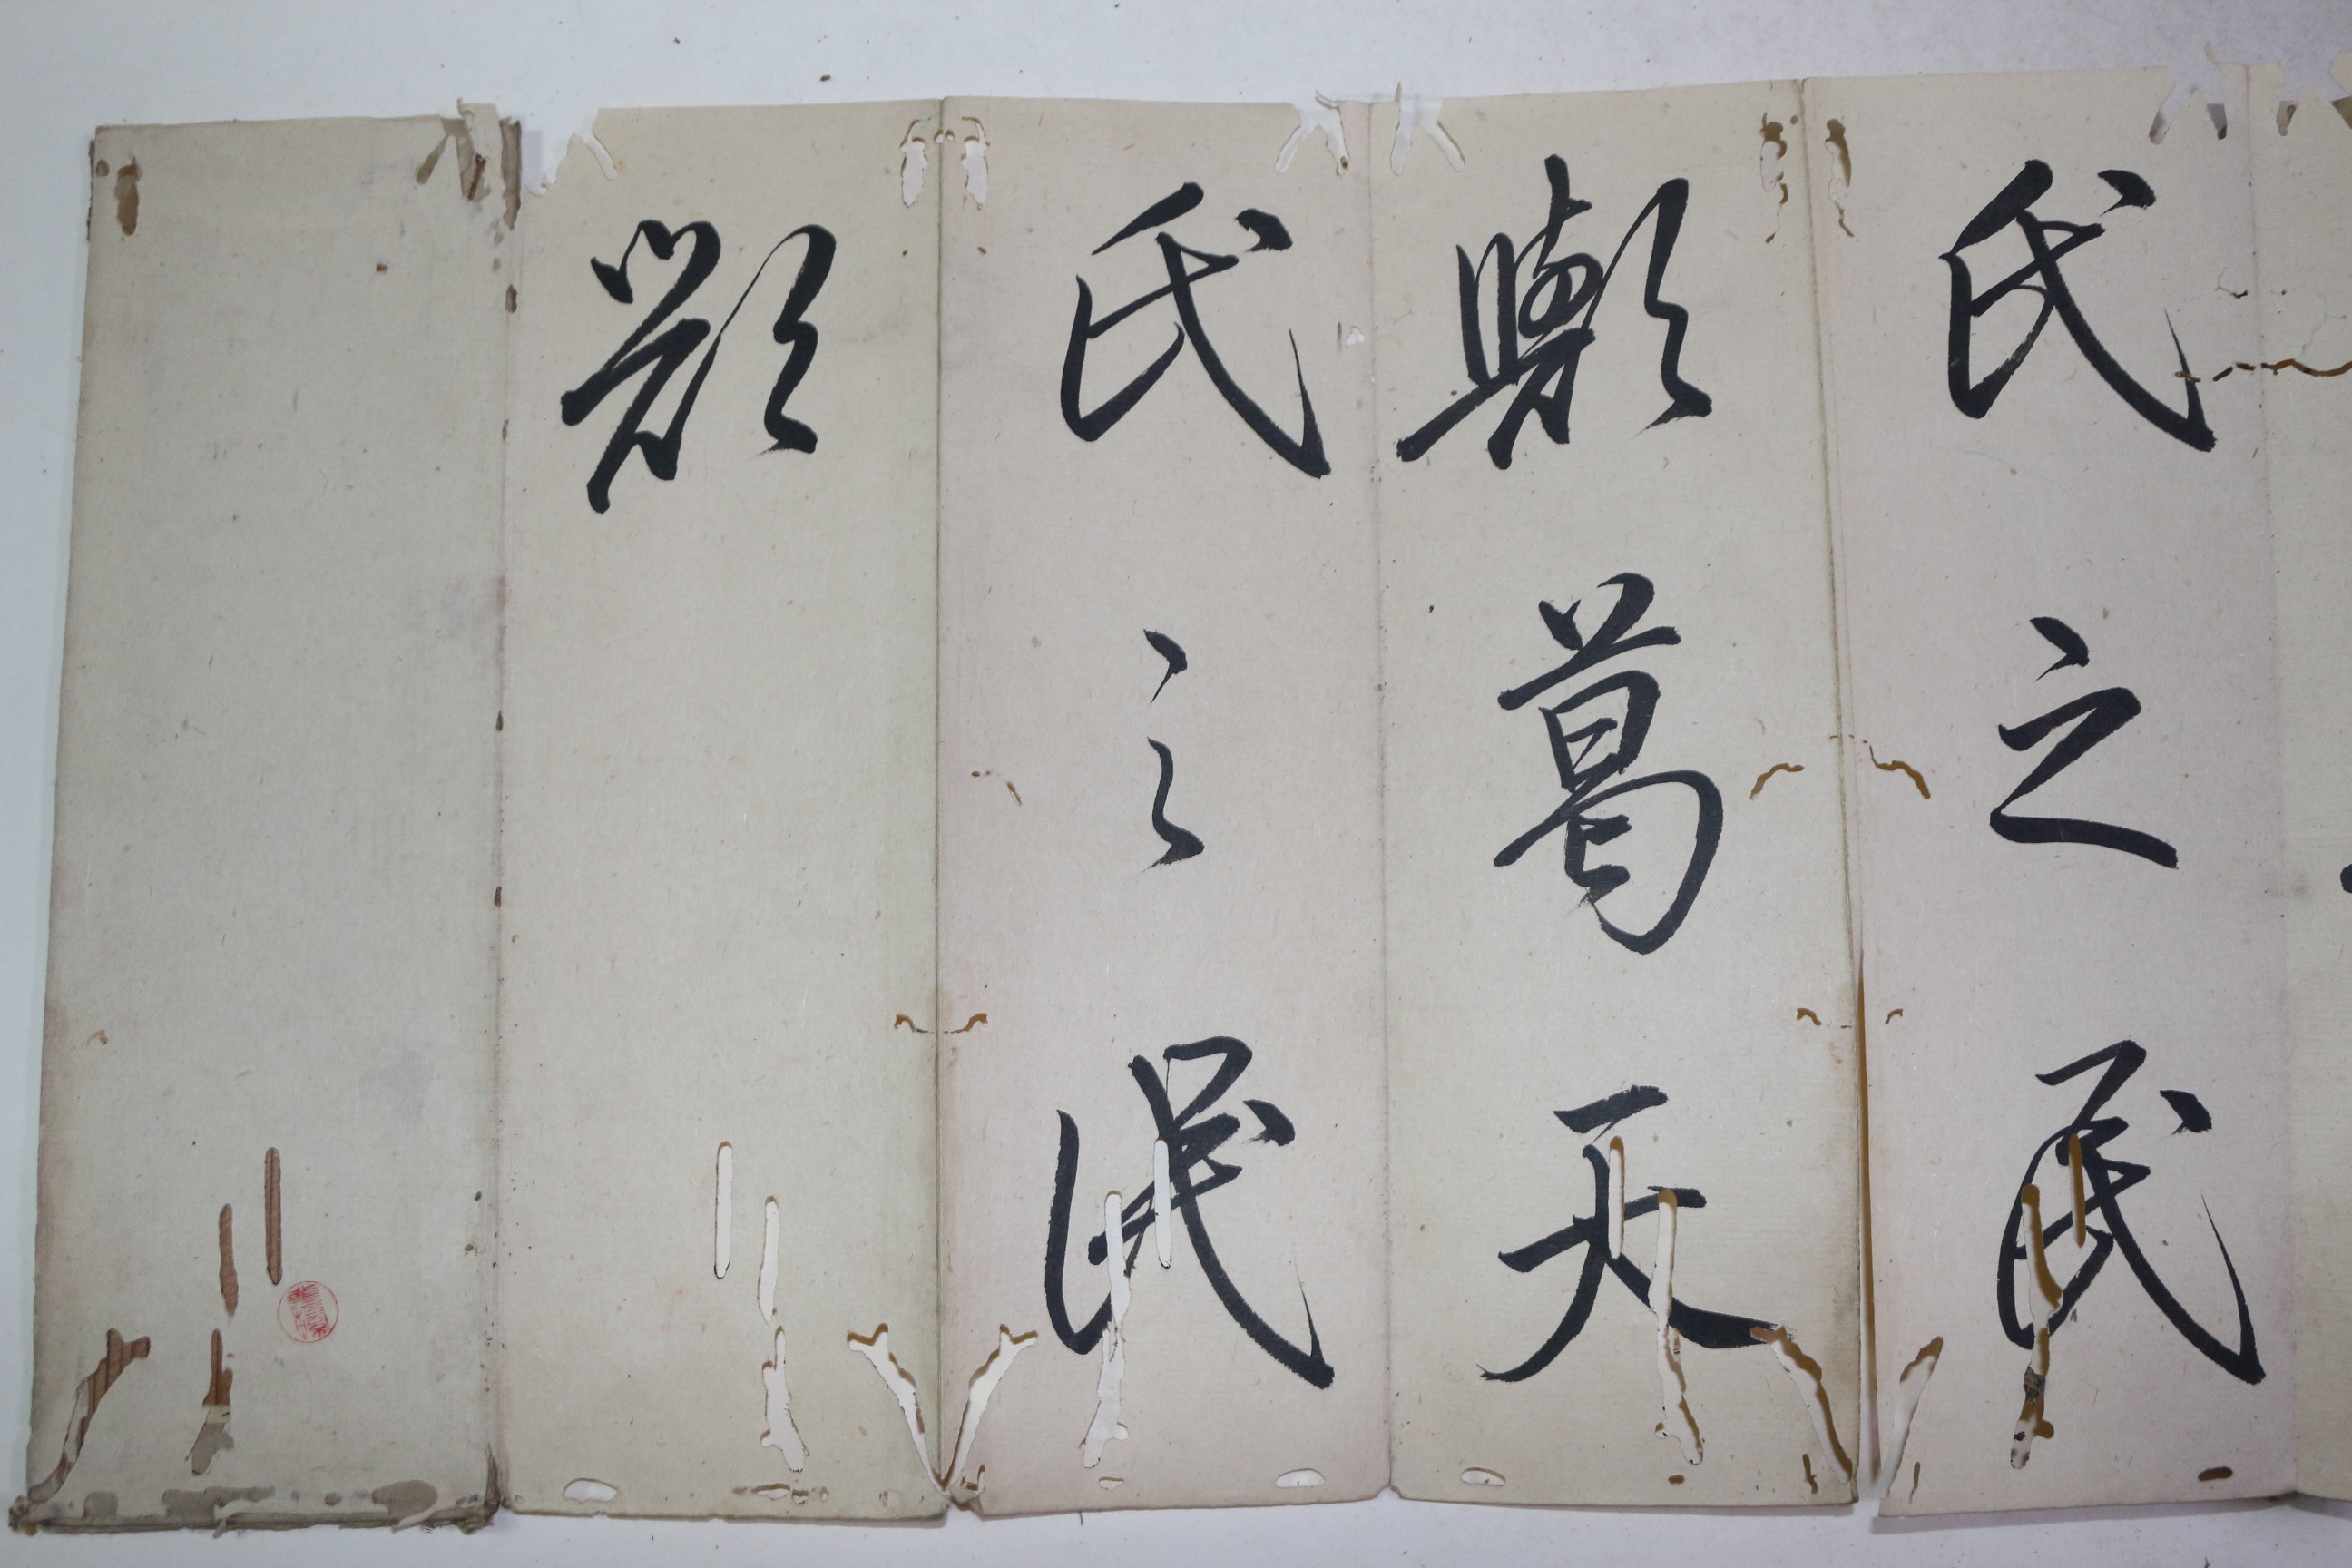 氏之民
歟葛天
氏之民
歟